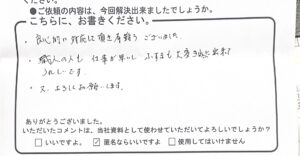 ださい。
●ご依頼の内容は、今回解決出来ましたでしょうか。
こちらに、お書きください。
・良心的に対応して頂き有難うございました。
・職人の人も仕事が早いし ふすまも大変きれいに出来て
うれしいです。
・又、よろしくお願いします。
ありがとうございました。
いただいたコメントは、当社資料として使わせていただいてよろしいでしょうか？
□ いいですよ。 ☑ 匿名ならいいですよ □ 使用してはいけません